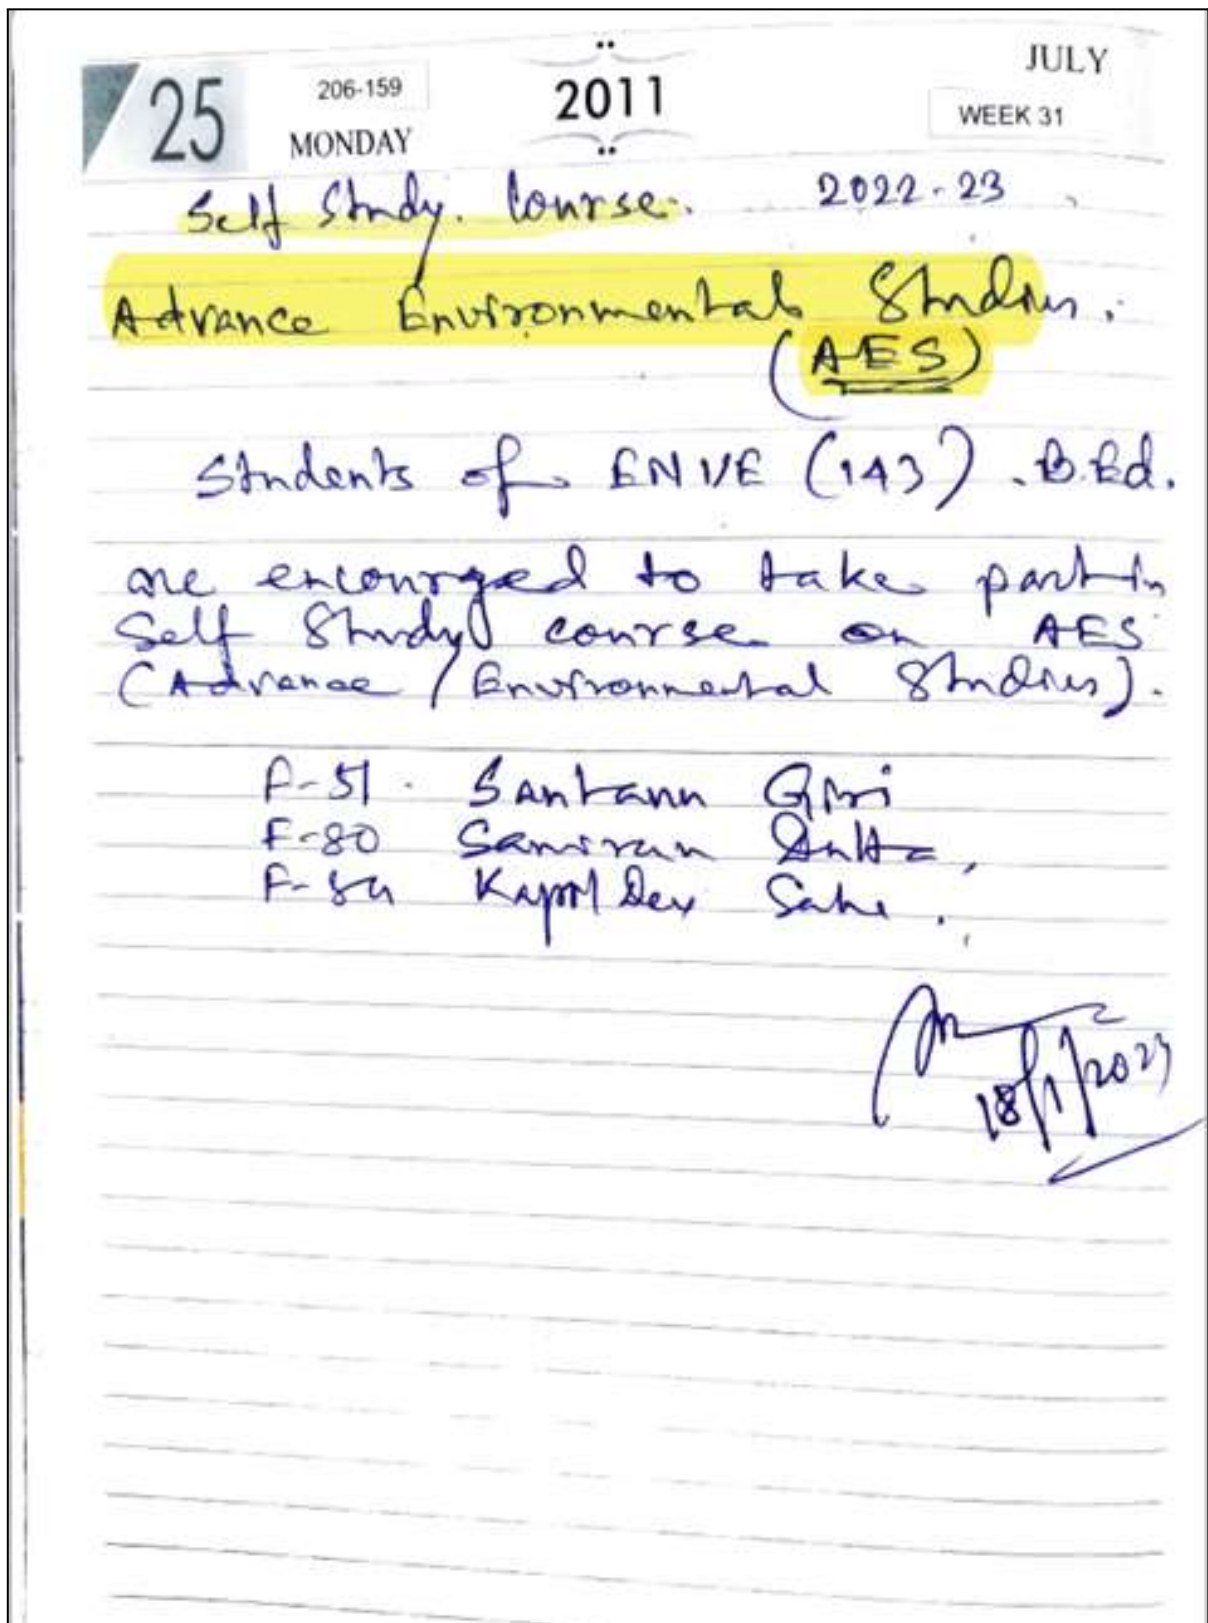 25 206-159 2011 JULY
MONDAY WEEK 31
Self Study. Course. 2022-23
Advance Environmental Studies.
(AES)
Students of ENVE (143). B.Ed.
are encourged to take part in
Self Study course on AES
(Advance Environmental Studies).
F-51. Santanu Giri
F-80 Samiran Dutta,
Kapil Dev
18/1/2023